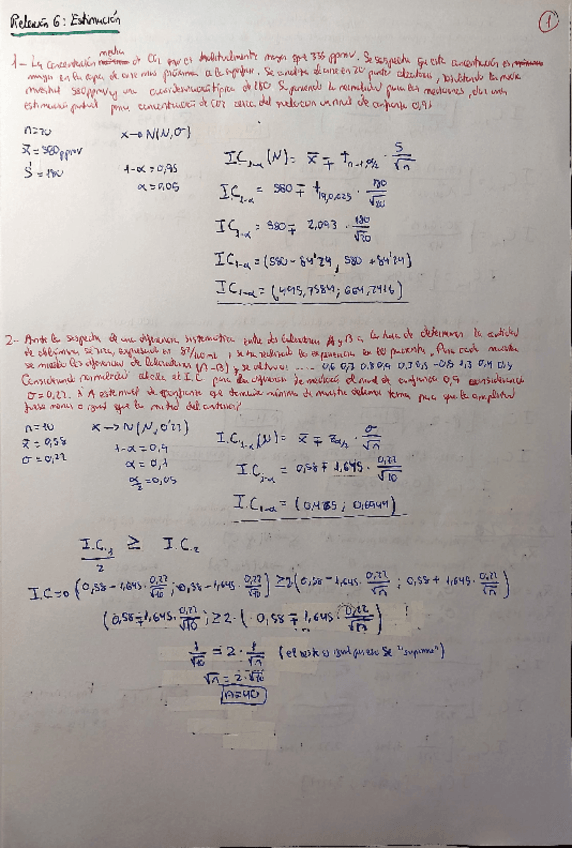 Relación 6: Estimación
1
media
1- La concentración de CO2 en es habitualmente mayor que 335 ppmv. Se sospecha que esta concentración es
mayor en la capa de aire más próxima a la superficie. Se analiza el aire en 20 puntos aleatorios, resultando la media
muestral 580 ppmv y una cuasidesviación típica de 180. Suponiendo la normalidad para las mediciones, dar una
estimación para concentración de CO2 cerca del suelo con un nivel de confianza 0,95
n=20 x→N(N,σ)
x̄ = 580 ppmv
S = 180 1-α=0,95
α=0,05
I.C1-α (N) = x̄ ∓ tn-1,α/2 · S/√n
I.C1-α = 580 ∓ t19,0,025 · 180/√20
I.C1-α = 580 ∓ 2,093 · 180/√20
I.C1-α = (580 - 84'24, 580 + 84'24)
I.C1-α = (495,7584; 664,2416)
2- Ante la sospecha de una diferencia sistemática entre dos laboratorios A y B a la hora de determinar la cantidad
de albúmina sérica, expresada en gr/100mL, se ha realizado la experiencia en 10 pacientes. Para cada muestra
se muestra las diferencias de laboratorios (A-B) y se obtuvo: ..... 0,6 0,7 0,8 0,9 0,7 1,5 -0,5 1,3 0,4
Considerando normalidad calcular el I.C para la diferencia de medias al nivel de confianza 0,9 considerando
σ=0,22. ¿A este nivel de confianza que tamaño mínimo de muestra debemos tomar para que la amplitud
fuese menor o igual que la mitad del anterior?
n=10 x→N(N,0'22)
x̄ = 0,58 1-α=0,9
σ = 0,22 α=0,1
α/2=0,05
I.C1-α(N) = x̄ ∓ zα/2 · σ/√n
I.C1-α = 0,58 ∓ 1,645 · 0,22/√10
I.C1-α = (0,4655; 0,6944)
I.C.1/2 ≥ I.C.2
I.C=0 (0,58-1,645·0,22/√10; 0,58-1,645·0,22/√10) ≥ 2(0,58-1,645·0,22/√n; 0,58+1,645·0,22/√n)
(0,58∓1,645·0,22/√10; ≥ 2·(0,58∓1,645·0,22/√n)
1/√10 = 2·1/√n (el resto es igual por eso se "suprime")
√n = 2·√10
n=40